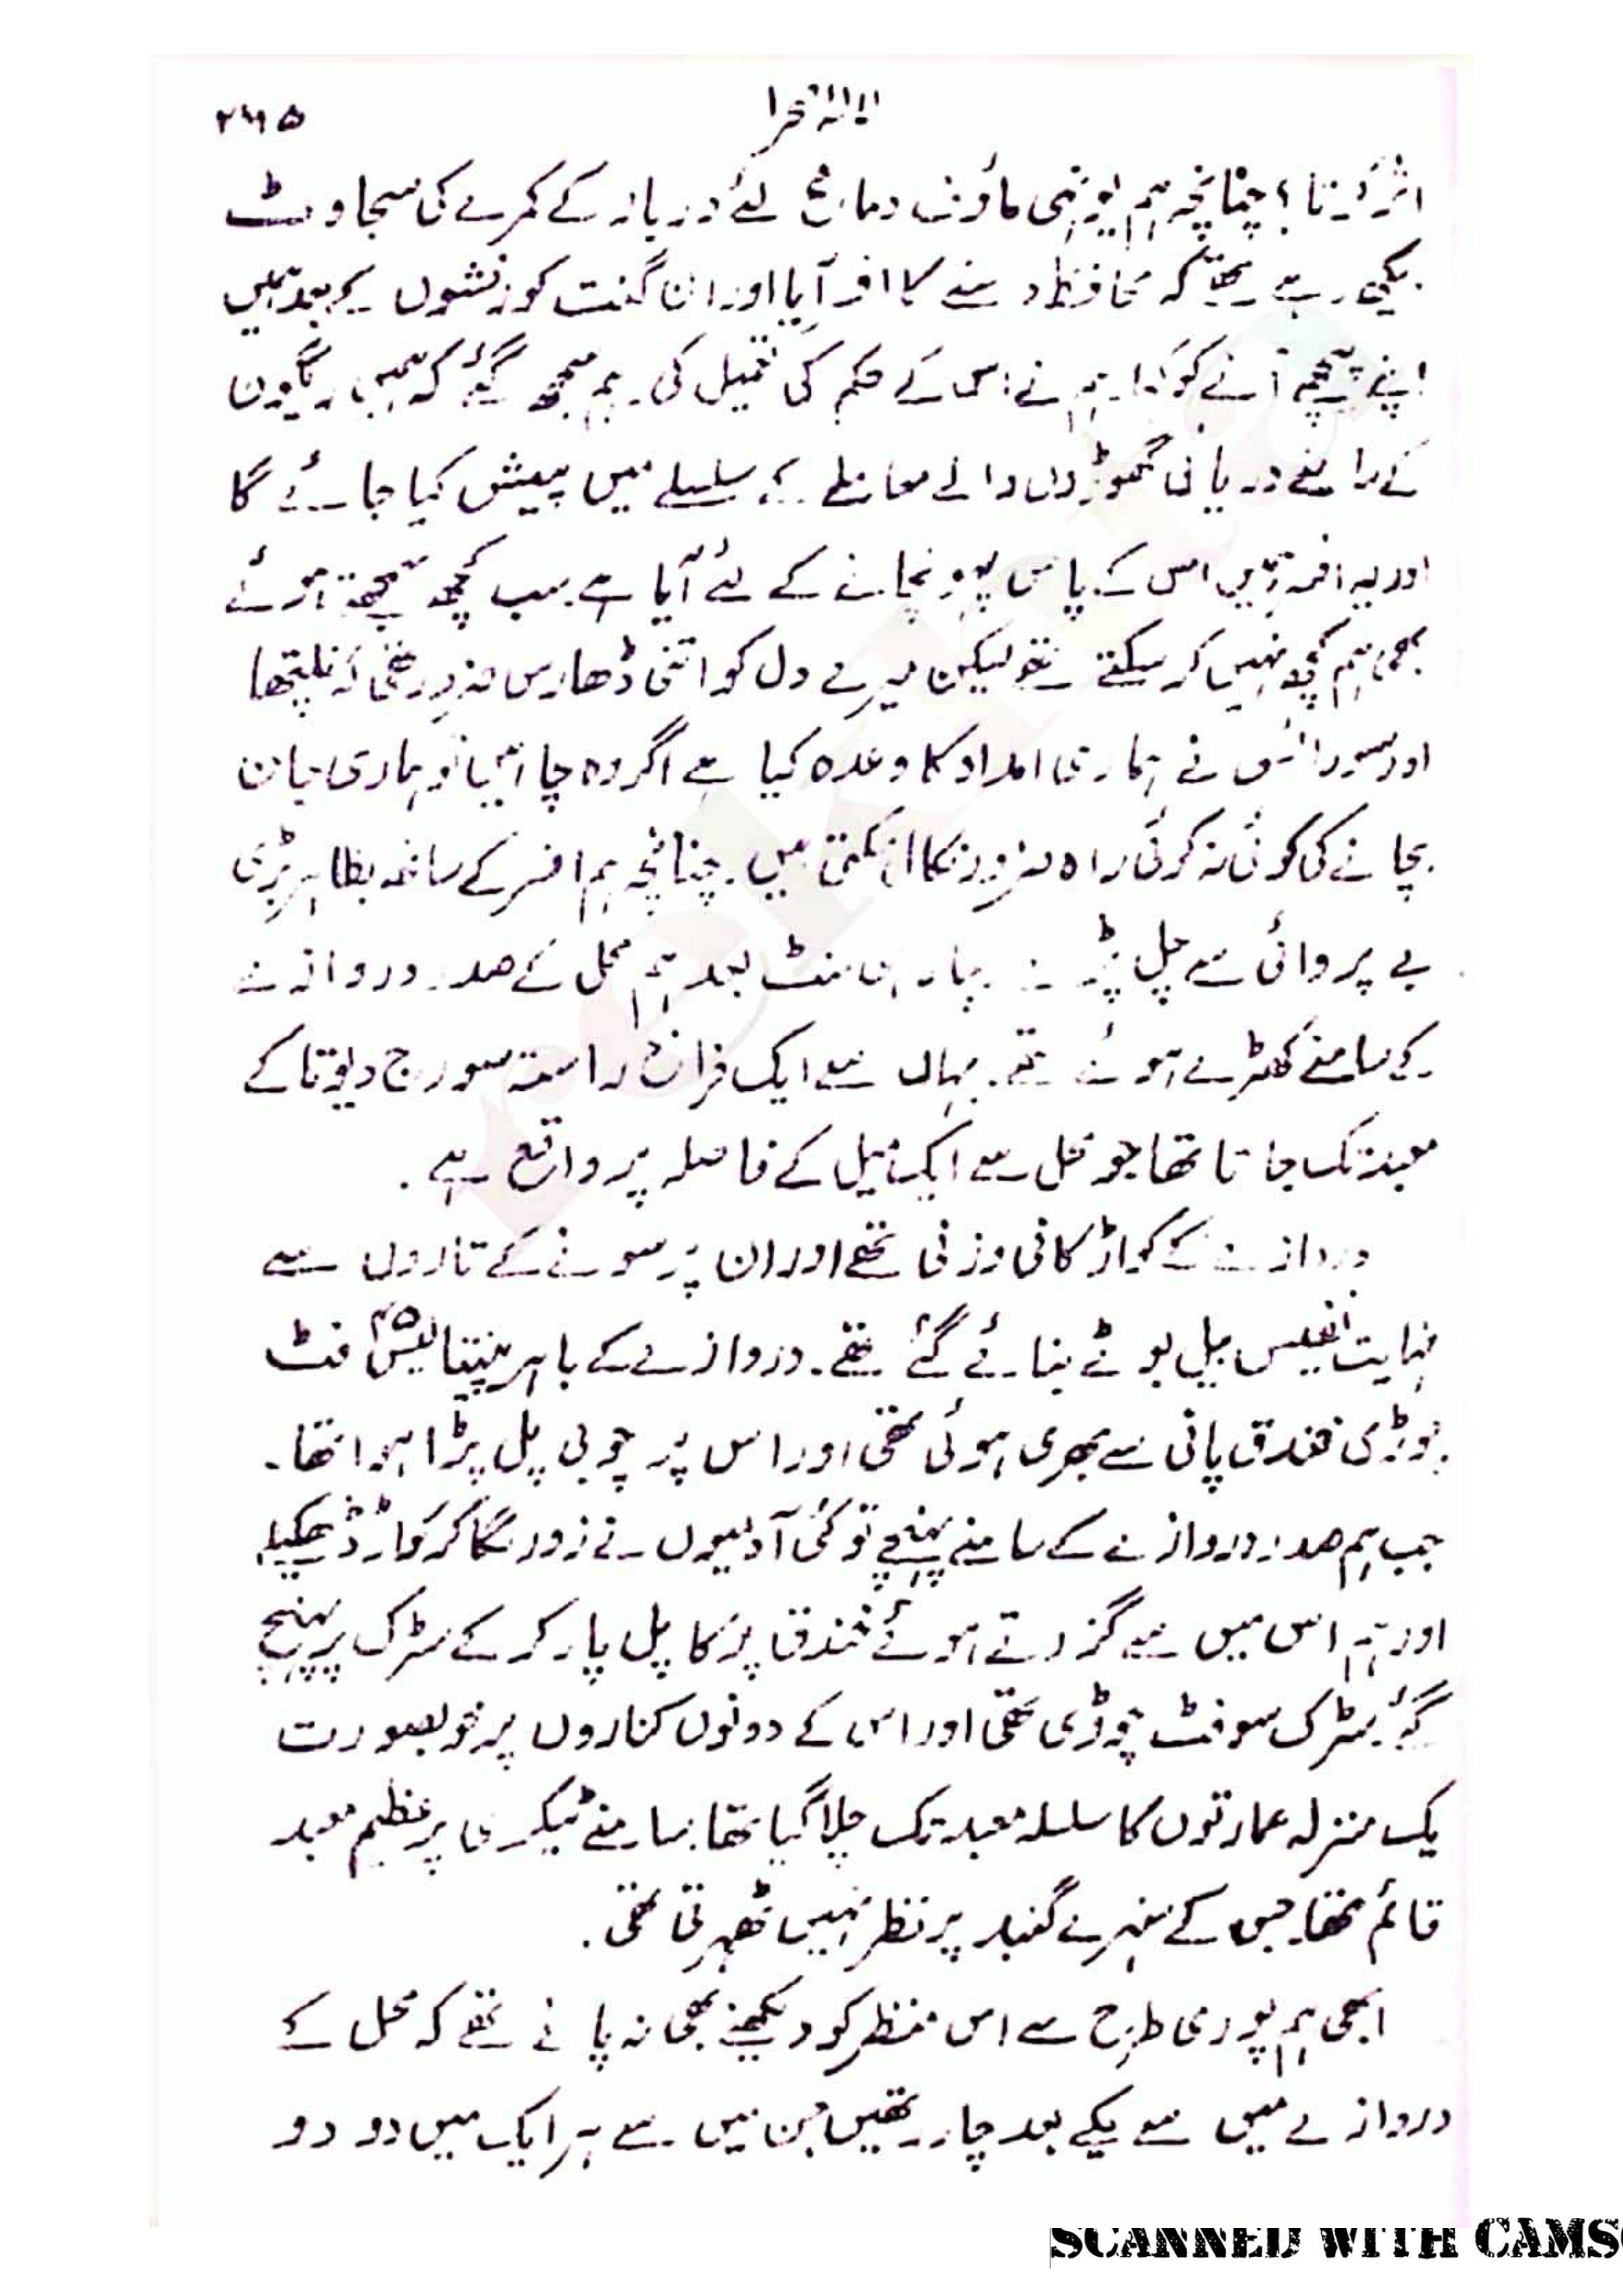 ۲۶۵
اثر کرتا؛ چنانچہ ہم یونہی ماؤف دماغ لئے دربار کے کمرے کی سجاوٹ
دیکھ رہے تھے کہ محافظ دستے کا افسر آیا اور ان گنت کورنشوں کے بعد ہمیں
اپنے پیچھے آنے کو کہا۔ ہم نے اس کے حکم کی تعمیل کی۔ ہم سمجھ گئے کہ ہمیں
کے سامنے دریائی گھوڑوں والے معاملے کے سلسلے میں پیش کیا جائے گا
اور یہ افسر ہمیں اس کے پاس پہونچانے کے لئے آیا ہے۔ سب کچھ سمجھتے ہوئے
بھی ہم کچھ نہیں کر سکتے تھے لیکن میرے دل کو اتنی ڈھارس ضرور تھی کہ نلپتھا
اور سورائس نے ہماری امداد کا وعدہ کیا ہے اگر وہ چاہیں تو ہماری جان
بچانے کی کوئی نہ کوئی راہ ضرور نکال سکتی ہیں۔ چنانچہ ہم افسر کے ساتھ بظاہر بڑی
بے پروائی سے چل پڑے۔ چار ہی منٹ بعد ہم محل کے صدر دروازے
کے سامنے کھڑے ہوئے تھے۔ یہاں سے ایک فراخ راستہ سورج دیوتا کے
معبد تک جاتا تھا جو محل سے ایک میل کے فاصلہ پر واقع ہے۔
دروازے کے کواڑ کافی وزنی تھے اور ان پر سونے کے تاروں سے
نہایت نفیس بیل بوٹے بنائے گئے تھے۔ دروازے کے باہر پینتالیس ۴۵ فٹ
چوڑی خندق پانی سے بھری ہوئی تھی اور اس پر چوبی پل پڑا ہوا تھا۔
جب ہم صدر دروازے کے سامنے پہنچے تو کئی آدمیوں نے زور لگا کر کواڑ ڈھکیلے
اور ہم اس میں سے گزرتے ہوئے خندق پر کا پل پار کر کے سڑک پر پہنچ
گئے۔ سڑک سو فٹ چوڑی تھی اور اس کے دونوں کناروں پر خوبصورت
یک منزلہ عمارتوں کا سلسلہ معبد تک چلا گیا تھا۔ سامنے ٹیکری پر عظیم معبد
قائم تھا۔ جس کے سنہرے گنبد پر نظر نہیں ٹھہرتی تھی۔
ابھی ہم پوری طرح سے اس منظر کو دیکھنے بھی نہ پائے تھے کہ محل کے
دروازے میں سے یکے بعد چار رتھیں جن میں سے ہر ایک میں دو دو
SCANNED WITH CAMS